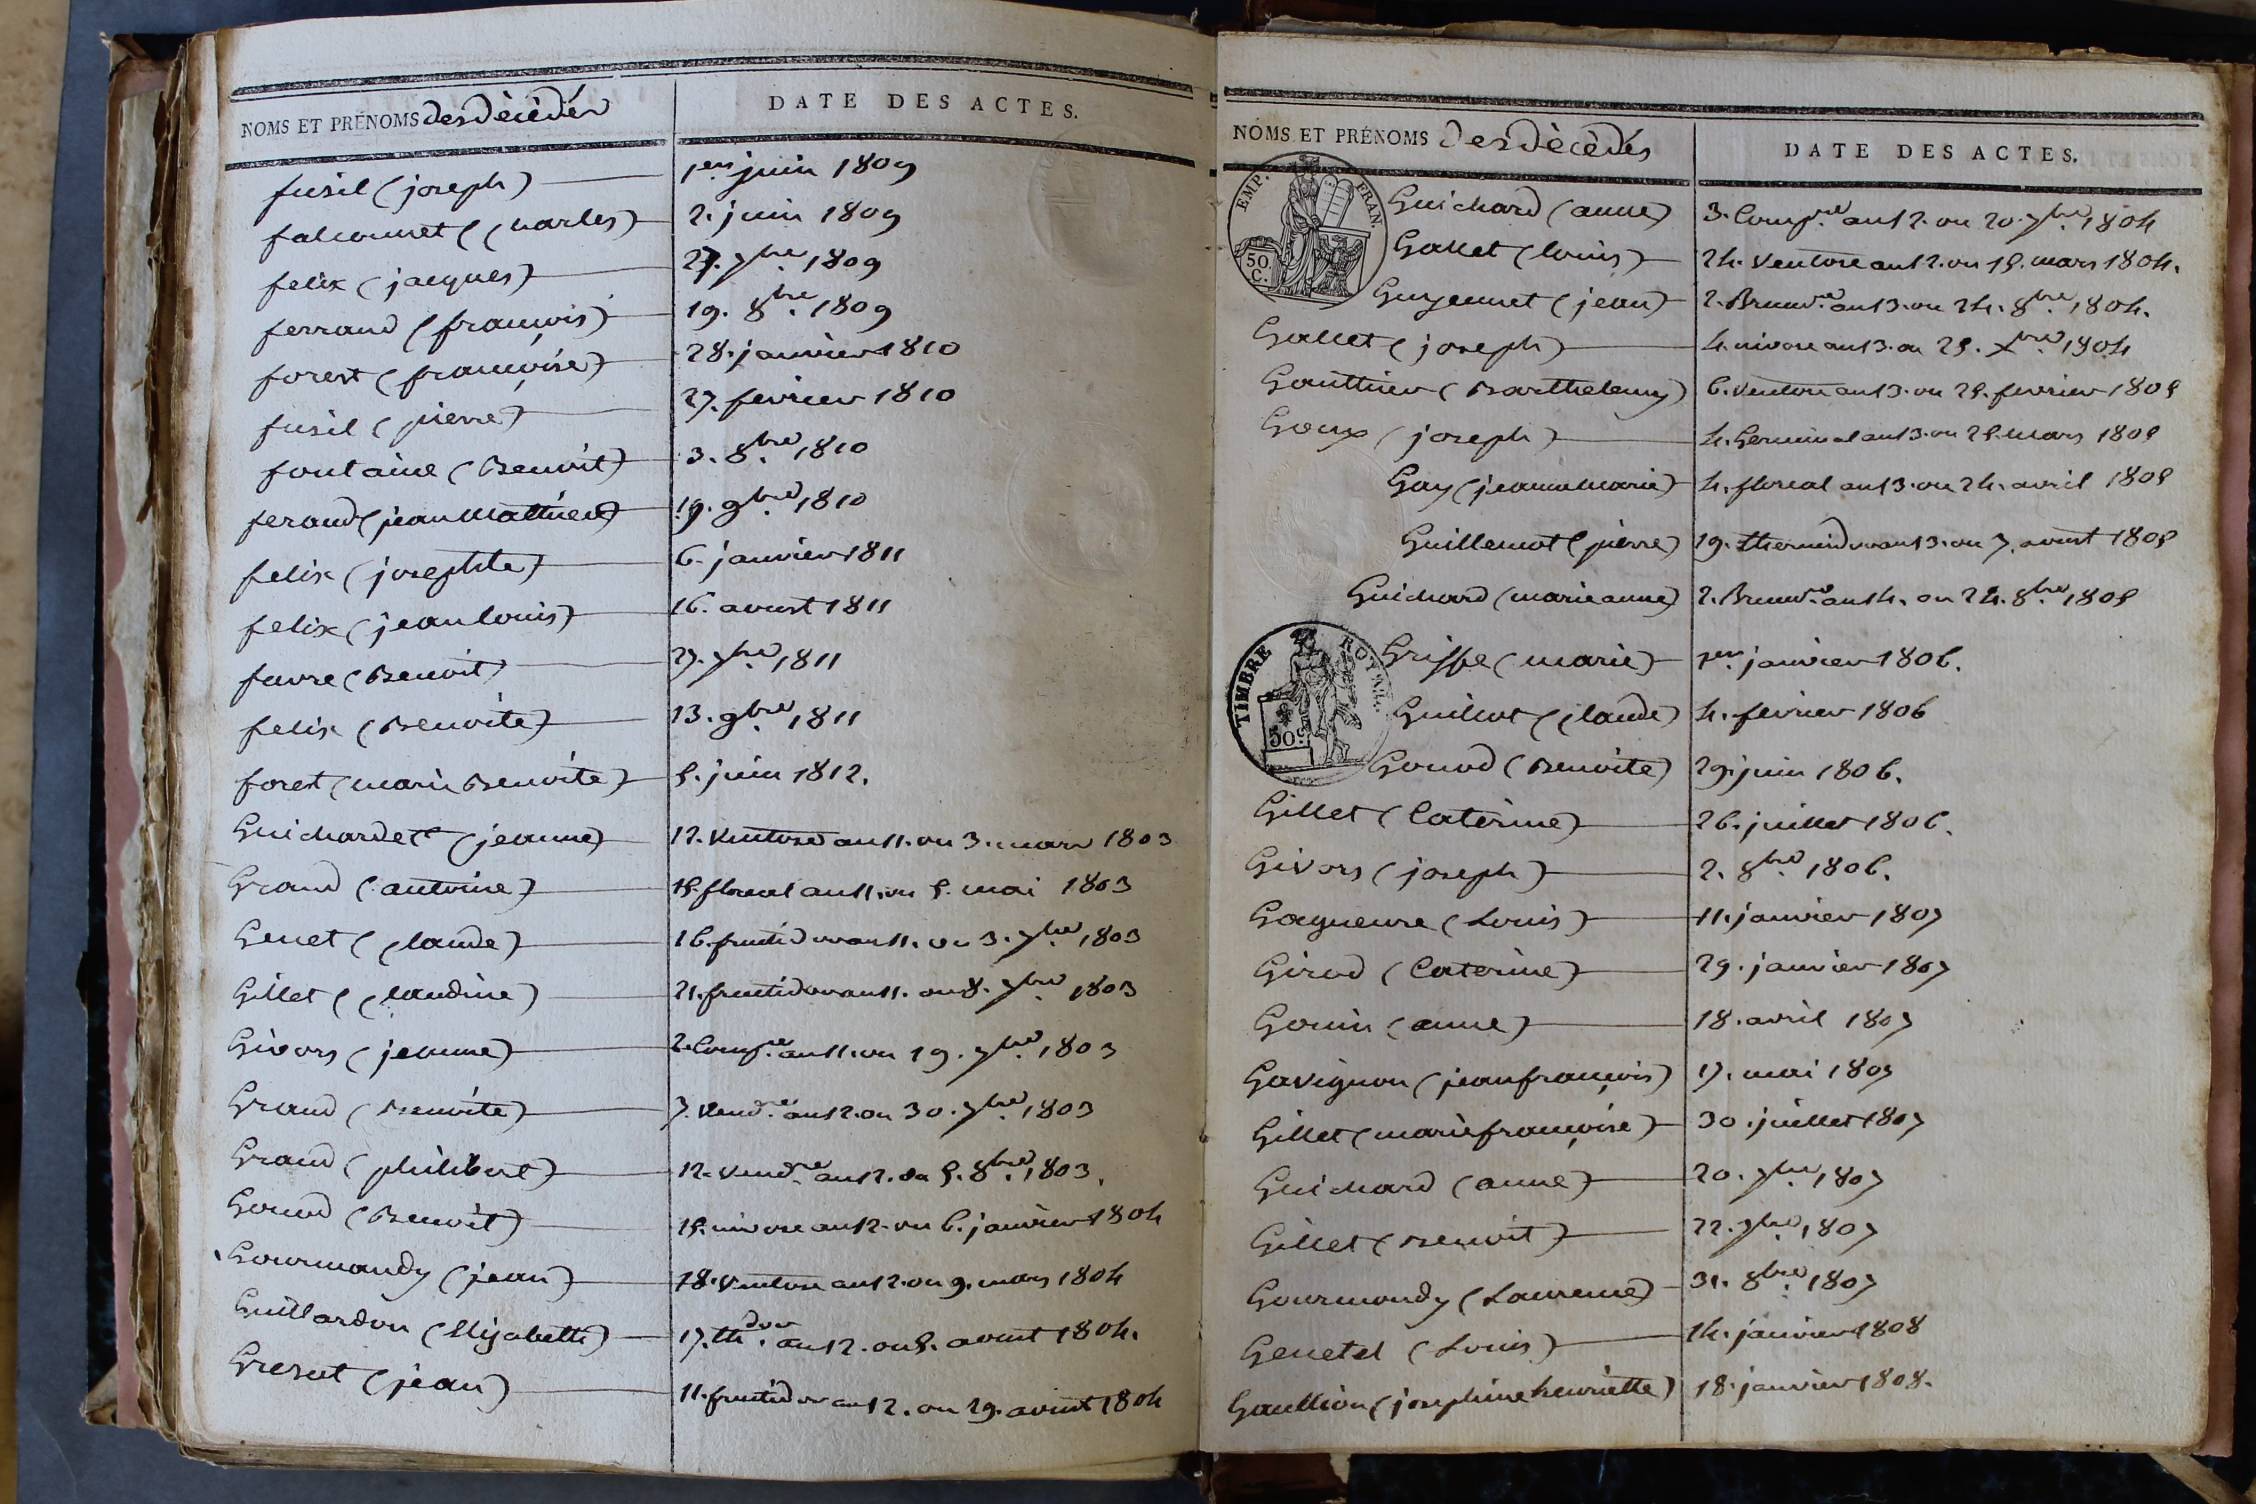 NOMS ET PRÉNOMS des décédés
DATE DES ACTES.
fusil (joseph) 1er juin 1809
falconnet (Charles) 2. juin 1809
felix (jacques) 27. 7bre 1809
ferrand (françois) 19. 8bre 1809
forest (françoise) 28. janvier 1810
fusil (pierre) 27. fevrier 1810
fontaine (Benoit) 3. 8bre 1810
feraud (jean Mathieu) 19. 9bre 1810
felix (josephte) 6. janvier 1811
felix (jean louis) 16. aoust 1811
favre (Benoit) 27. 7bre 1811
felix (Benoite) 13. 9bre 1811
forest (marie Benoite) 5. juin 1812.
Guichardet (jeanne) 12. Ventose an 11. ou 3. mars 1803
Grand (antoine) 15. floreal an 11. ou 5. mai 1803
Genet (Claude) 16. fructidor an 11. ou 3. 7bre 1803
Gillet (Claudine) 21. fructidor an 11. ou 8. 7bre 1803
Givors (jeanne) 2. Compre an 11. ou 19. 7bre 1803
Grand (Benoite) 7. Vendre an 12. ou 30. 7bre 1803
Grand (philibert) 12. Vendre an 12. ou 5. 8bre 1803.
Gonod (Benoit) 15. nivose an 12. ou 6. janvier 1804
Gourmandy (jean) 18. Ventose an 12. ou 9. mars 1804
Guillardon (Elizabeth) 17. thdor an 12. ou 5. aoust 1804.
(jean) 11. fructidor an 12. ou 29. aoust 1804
NOMS ET PRÉNOMS des décédés
DATE DES ACTES.
EMP. FRAN.
50 C.
Guichard (anne) 3. Compre an 12. ou 20. 7bre 1804
Gallet (louis) 24. Ventose an 12. ou 15. mars 1804.
Guyennet (jean) 2. Brumre an 13. ou 24. 8bre 1804.
Gallet (joseph) 4. nivose an 13. ou 25. Xbre 1804
Gauthier (Barthelemy) 6. Ventose an 13. ou 25. fevrier 1805
Goux (joseph) 4. Germinal an 13. ou 25. mars 1805
Gay (jeanne marie) 4. floreal an 13. ou 24. avril 1805
Guillemot (pierre) 19. thermidor an 13. ou 7. aoust 1805
Guichard (marie anne) 2. Brumre an 14. ou 24. 8bre 1805
TIMBRE ROYAL.
50c
Griffe (marie) 1er janvier 1806.
Guillot (Claude) 4. fevrier 1806
Gonod (Benoite) 29. juin 1806.
Gillet (Caterine) 26. juillet 1806.
Givors (joseph) 2. 8bre 1806.
Gagneure (Louis) 11. janvier 1807
Girod (Caterine) 29. janvier 1807
Gonin (anne) 18. avril 1807
Gavignon (jean françois) 17. mai 1807
Gillet (marie françoise) 30. juillet 1807
Guichard (anne) 20. 7bre 1807
Gillet (Benoit) 22. 7bre 1807
Gourmondy (Laurence) 31. 8bre 1807
Genetel (Louis) 14. janvier 1808
Gaullion (josephine henriette) 18. janvier 1808.